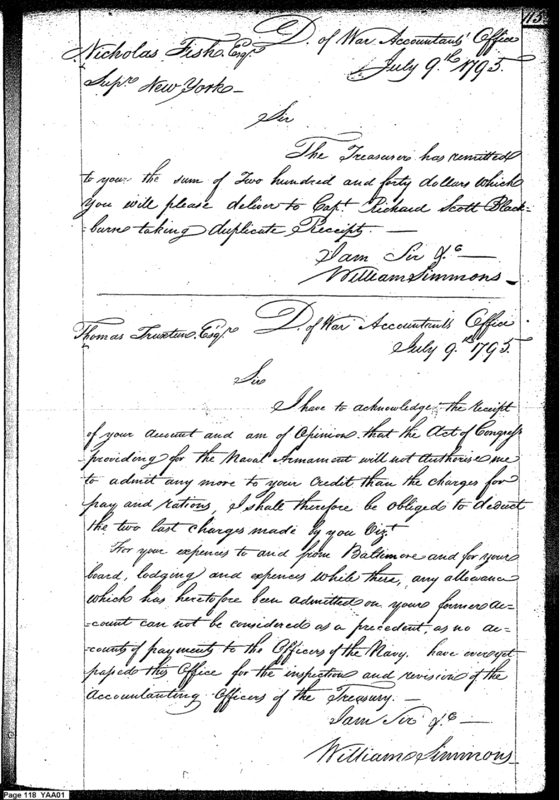 115
D. of War Accountants' Office
Nicholas Fish Esqr. July 9.th 1795.
Supr. New York —
Sir
The Treasurer has remitted
to you the sum of Two hundred and forty dollars which
you will please deliver to Capt. Richard Scott Black-
-burn taking duplicate Receipts —
I am Sir &c —
William Simmons
Thomas Truxtun, Esqr. D. of War Accountants Office
July 9.th 1795.
Sir
I have to acknowledge the receipt
of your account and am of Opinion that the Act of Congress
providing for the Naval Armament will not Authorise me
to admit any more to your Credit than the charges for
pay and rations, I shall therefore be obliged to deduct
the two last charges made by you Vizt.
For your expences to and from Baltimore and for your
board, lodging and expences while there, any allowance
which has heretofore been admitted on your former ac-
-count can not be considered as a precedent, as no ac-
-counts of payments to the Officers of the Navy have ever yet
passed this Office for the inspection and revision of the
Accountanting Officers of the Treasury. —
I am Sir &c —
William Simmons
Page 118 YAA01